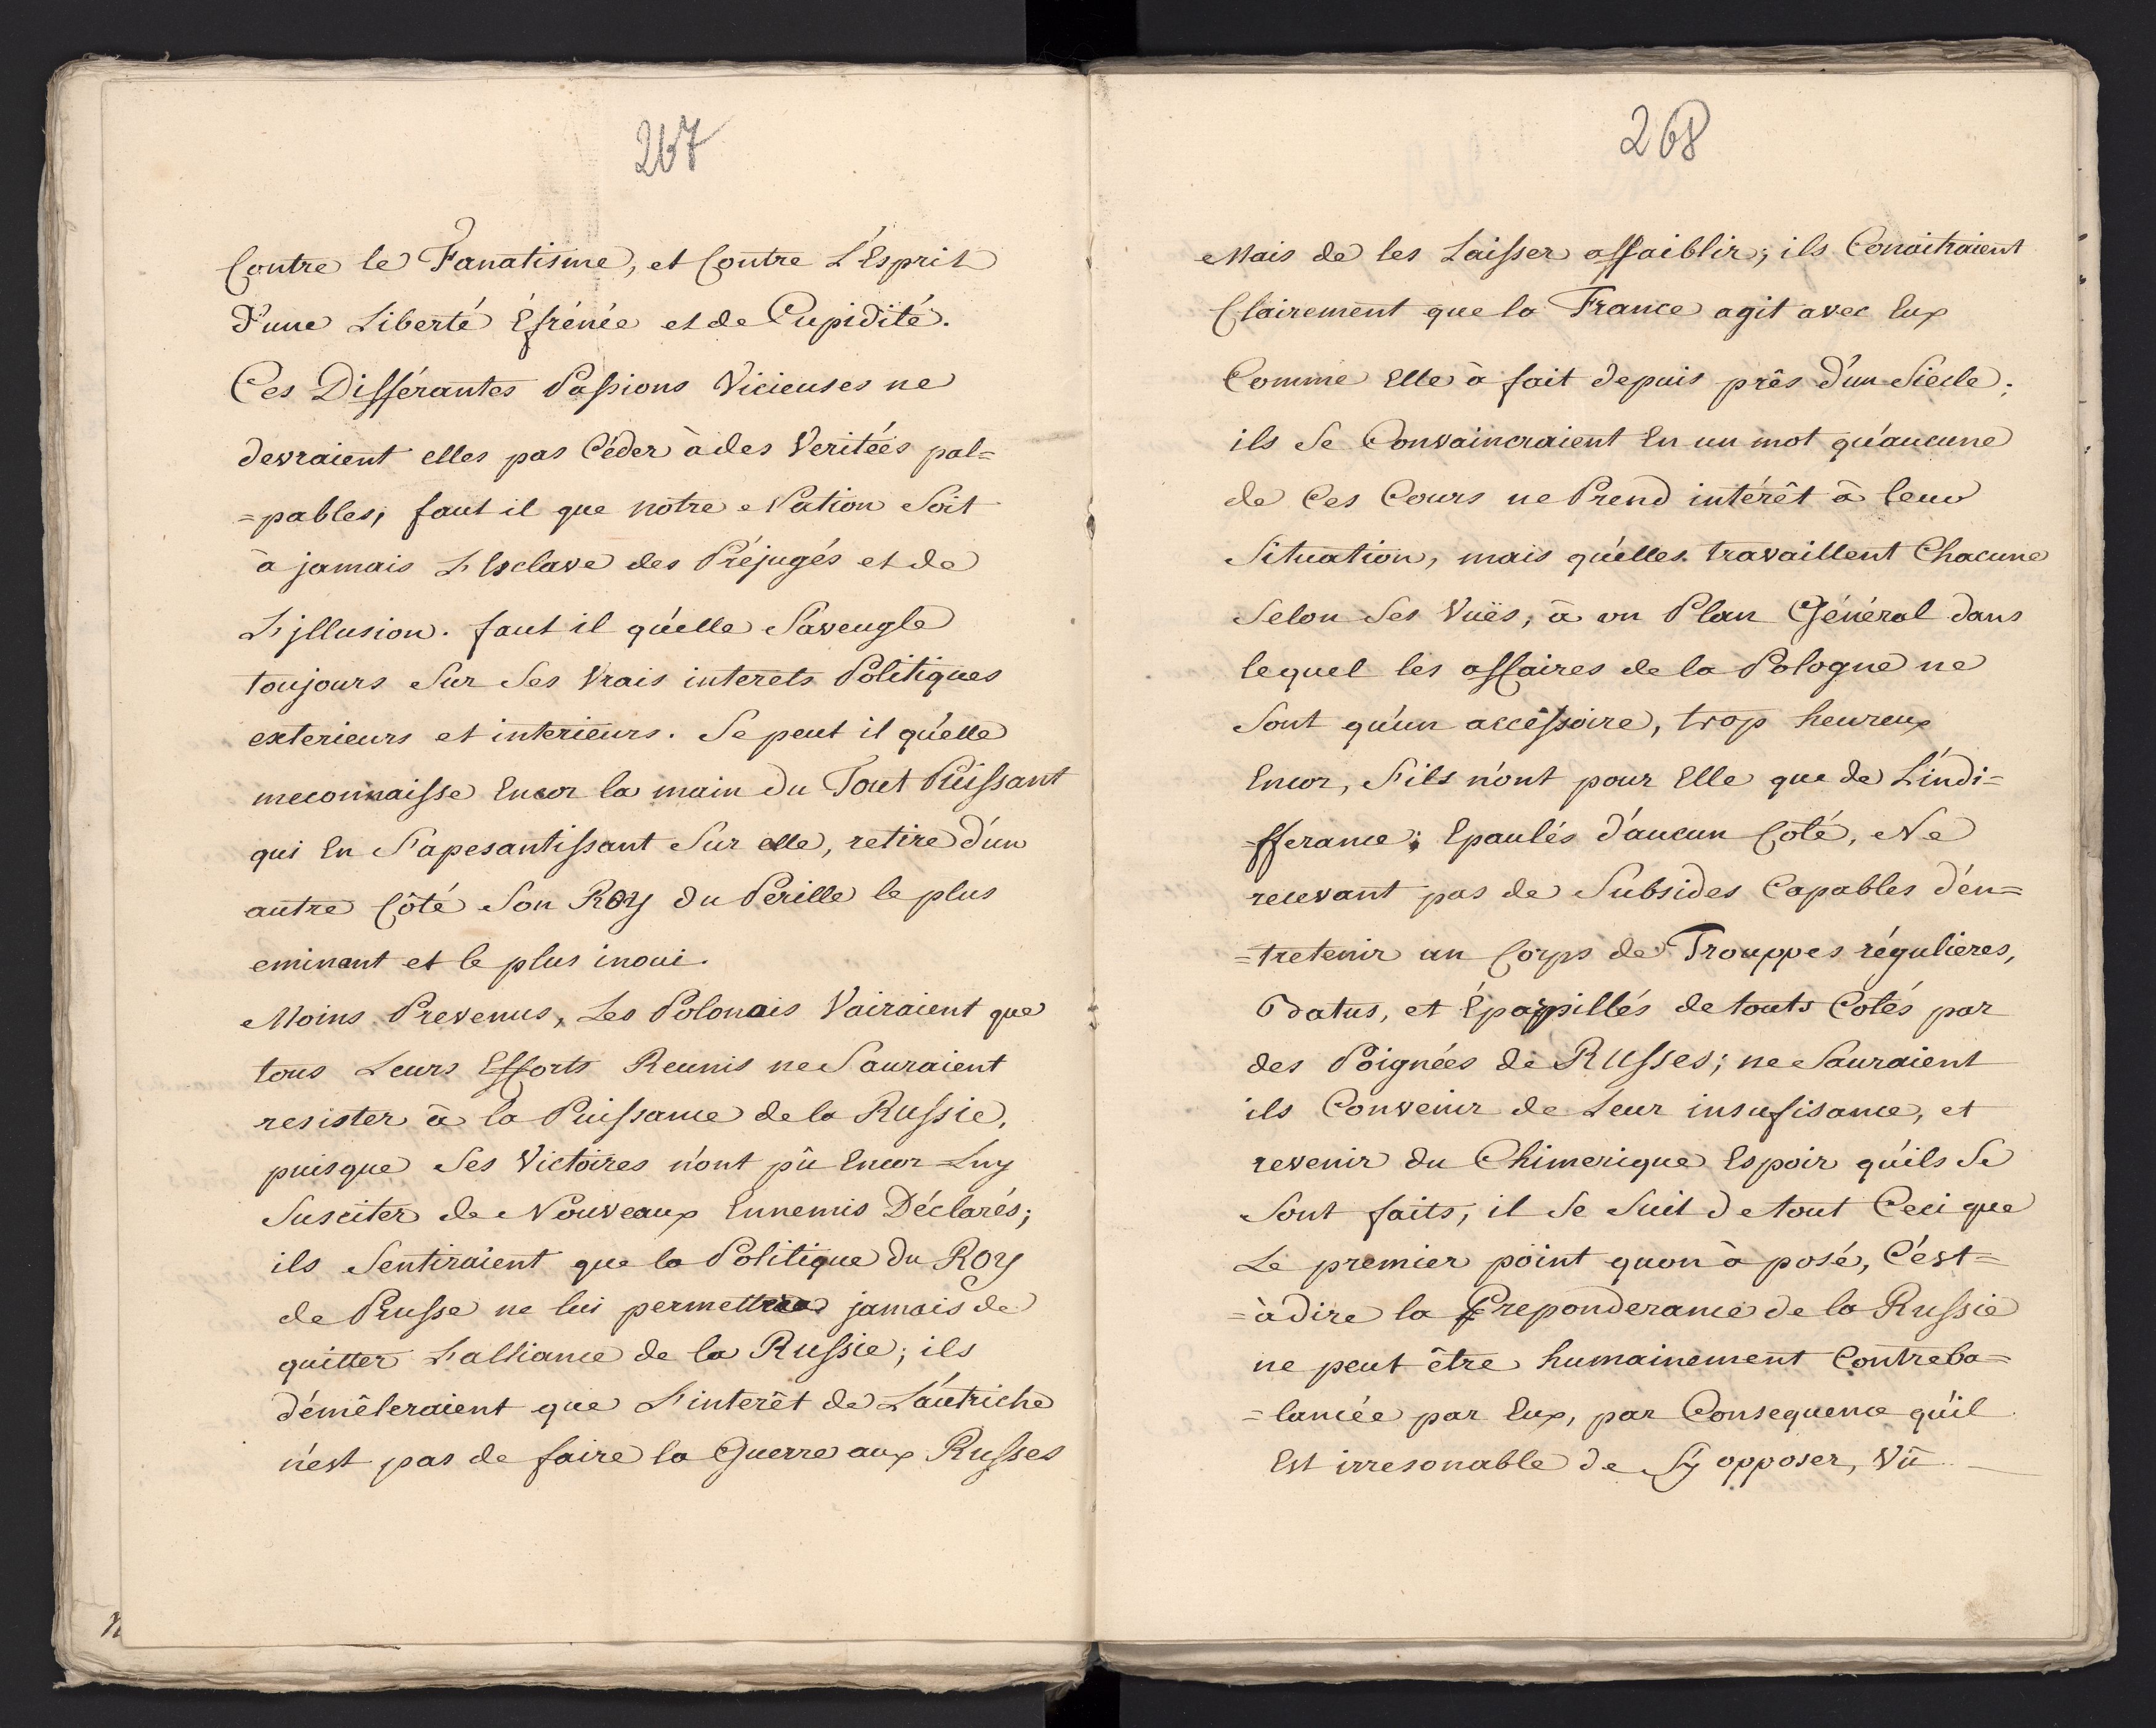 267
Contre le Fanatisme, et Contre L'Esprit
d'une Liberté Éfrénée et de Cupidité.
Ces Differantes Passions Vicieuses ne
devraient elles pas Céder à des Veritées pal=
=pables, faut il que nôtre Nation Soit
à jamais L'Esclave des Préjugés et de
L'jllusion. faut il qu'elle S'aveugle
toujours Sur Ses Vrais interets Politiques
exterieurs et interieurs. Se peut il qu'elle
meconnaisse Encor la main du Tout Puissant
qui En S'apesantissant Sur elle, retire d'un
autre Côté Son Roy du Perille le plus
eminent et le plus inoui.
Moins Prevenus, Les Polonais Vairaient que
tous Leurs Efforts Reunis ne Sauraient
resister à la Puissance de la Russie,
puisque Ses Victoires n'ont pû Encor Luy
Susciter de Nouveaux Ennemis Déclarés;
ils Sentiraient que la Politique du Roy
de Prusse ne lui permettra jamais de
quitter L'alliance de la Russie; ils
démêleraient que L'interêt de L'autriche
n'est pas de faire la Guerre aux Russes
268
Mais de les Laisser affaiblir; ils Conaitraient
Clairement que la France agit avec Eux
Comme Elle à fait depuis près d'un Siecle;
ils Se Convaincraient En un mot qu'aucune
de Ces Cours ne Prend intérêt à leur
Situation, mais qu'elles travaillent Chacune
Selon Ses Vuës, à un Plan Général dans
lequel les affaires de la Pologne ne
Sont qu'un accéssoire, trop heureux
Encor, S'ils n'ont pour Elle que de L'indi=
=fferance; Epaulés d'aucun Côté, Ne
recevant pas de Subsides Capables d'en=
=tretenir un Corps de Trouppes régulieres,
Batus, et Éparpillés de touts Cotés par
des Poignées de Russes; ne Sauraient
ils Convenir de Leur insufisance, et
revenir du Chimerique Espoir qu'ils Se
Sont faits; il Se Suit de tout Ceci que
Le premier point qu'on à posé, C'est=
=à dire la Preponderance de la Russie
ne peut être humainement Contreba=
=lancée par Eux, par Consequence qu'il
Est irresonable de S'y opposer, Vû